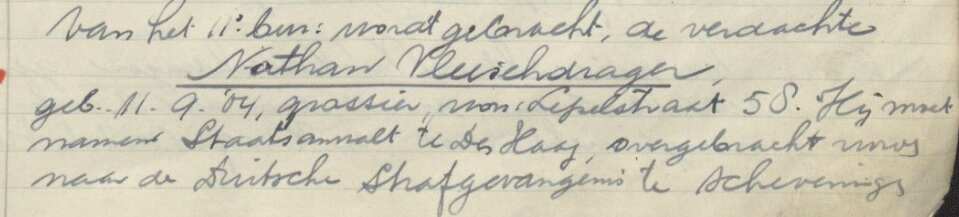 van het 11e bur: wordt gebracht, de verdachte
Nathan Vleeschdrager,
geb. 11.9.'04, grossier, won: Lepelstraat 58. Hij moet
namens Staatsanwalt te Den Haag, overgebracht
naar de Duitsche Strafgevangenis te Scheveningen